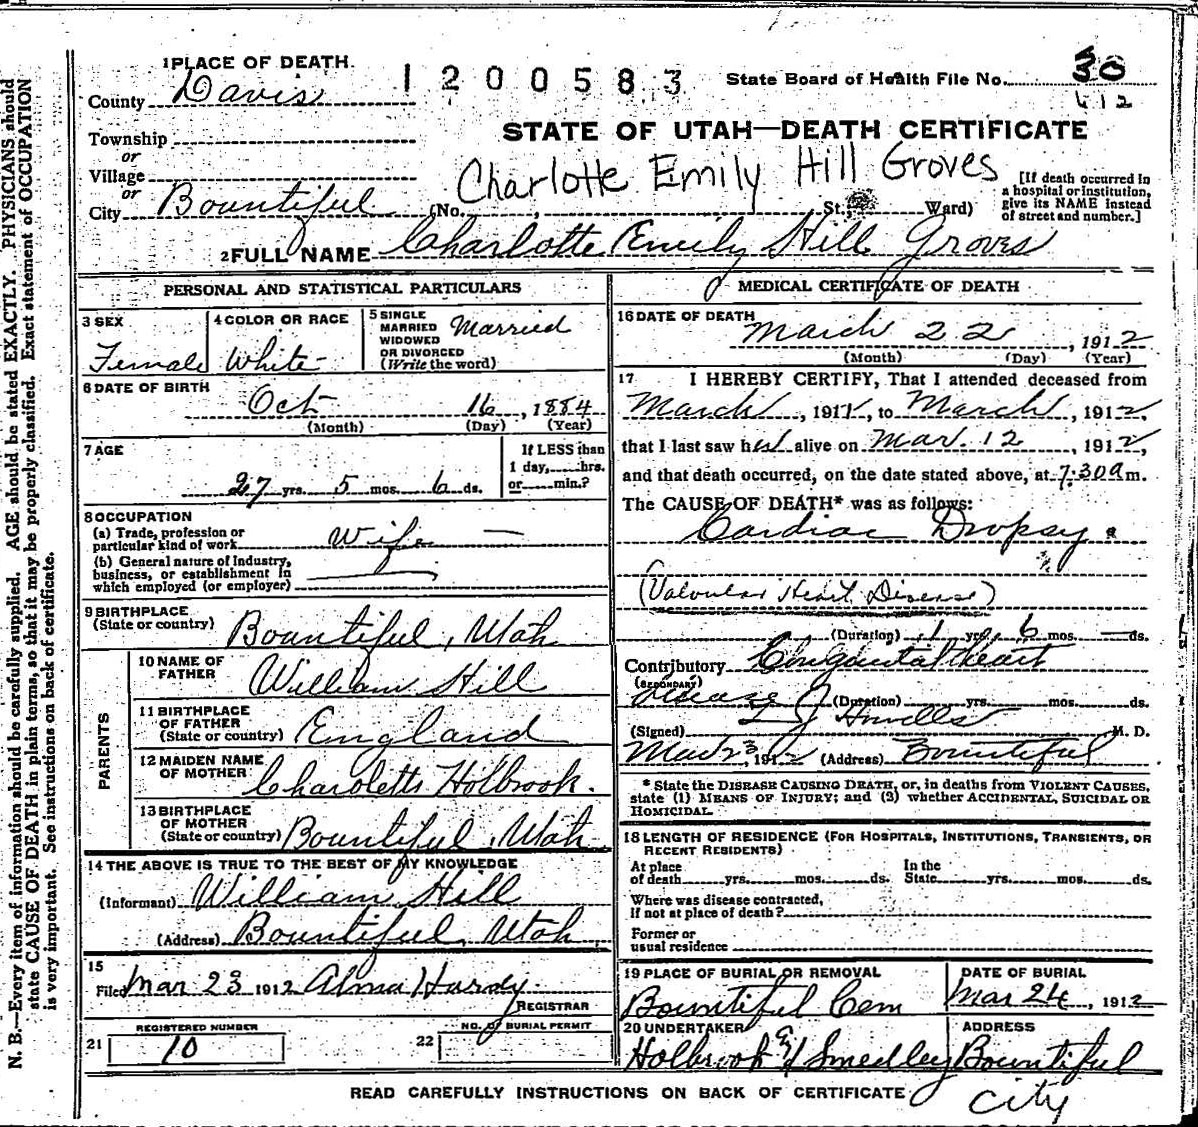 1 PLACE OF DEATH.
1200583
State Board of Health File No. 30
County Davis
612
STATE OF UTAH—DEATH CERTIFICATE
Township
or
Village
or
City Bountiful
Charlotte Emily Hill Groves
(No. , St., Ward)
[If death occurred in
a hospital or institution,
give its NAME instead
of street and number.]
2 FULL NAME Charlotte Emily Hill Groves
PERSONAL AND STATISTICAL PARTICULARS
3 SEX
Female
4 COLOR OR RACE
White
5 SINGLE
MARRIED
WIDOWED
OR DIVORCED
(Write the word)
Married
6 DATE OF BIRTH
Oct 16, 1884
(Month) (Day) (Year)
7 AGE
27 yrs. 5 mos. 6 ds.
If LESS than
1 day, hrs.
or min.?
8 OCCUPATION
(a) Trade, profession or
particular kind of work Wife —
(b) General nature of Industry,
business, or establishment in
which employed (or employer)
9 BIRTHPLACE
(State or country) Bountiful, Utah
PARENTS
10 NAME OF
FATHER William Hill
11 BIRTHPLACE
OF FATHER
(State or country) England
12 MAIDEN NAME
OF MOTHER Charoletts Holbrook.
13 BIRTHPLACE
OF MOTHER
(State or country) Bountiful, Utah
14 THE ABOVE IS TRUE TO THE BEST OF MY KNOWLEDGE
(Informant) William Hill
(Address) Bountiful, Utah
15
Filed Mar 23 1912 Alma Hardy
REGISTRAR
REGISTERED NUMBER
21 10
NO. OF BURIAL PERMIT
22
MEDICAL CERTIFICATE OF DEATH
16 DATE OF DEATH
March 22, 1912
(Month) (Day) (Year)
17 I HEREBY CERTIFY, That I attended deceased from
March, 1911, to March, 1912,
that I last saw her alive on Mar. 12, 1912,
and that death occurred, on the date stated above, at 7:30 a m.
The CAUSE OF DEATH* was as follows:
Cardiac Dropsy
(Valvular Heart Disease)
(Duration) 1 yrs. 6 mos. — ds.
Contributory Congenital Heart
(SECONDARY)
Disease (Duration) yrs. mos. ds.
(Signed) M. D.
Mar 23, 1912 (Address) Bountiful
* State the DISEASE CAUSING DEATH, or, in deaths from VIOLENT CAUSES,
state (1) MEANS OF INJURY; and (2) whether ACCIDENTAL, SUICIDAL OR
HOMICIDAL.
18 LENGTH OF RESIDENCE (FOR HOSPITALS, INSTITUTIONS, TRANSIENTS, OR
RECENT RESIDENTS)
At place
of death yrs. mos. ds.
In the
State yrs. mos. ds.
Where was disease contracted,
if not at place of death?
Former or
usual residence
19 PLACE OF BURIAL OR REMOVAL
Bountiful Cem
DATE OF BURIAL
Mar 24, 1912
20 UNDERTAKER
Holbrook & Smedley
ADDRESS
Bountiful
City
READ CAREFULLY INSTRUCTIONS ON BACK OF CERTIFICATE
N. B.—Every item of information should be carefully supplied. AGE should be stated EXACTLY. PHYSICIANS should
state CAUSE OF DEATH in plain terms, so that it may be properly classified. Exact statement of OCCUPATION
is very important. See instructions on back of certificate.